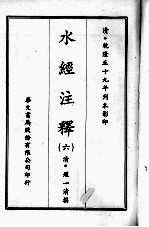 清·乾隆五十九年刊本影印
水經注釋
(六)
清·趙一清撰
華文書局股份有限公司印行